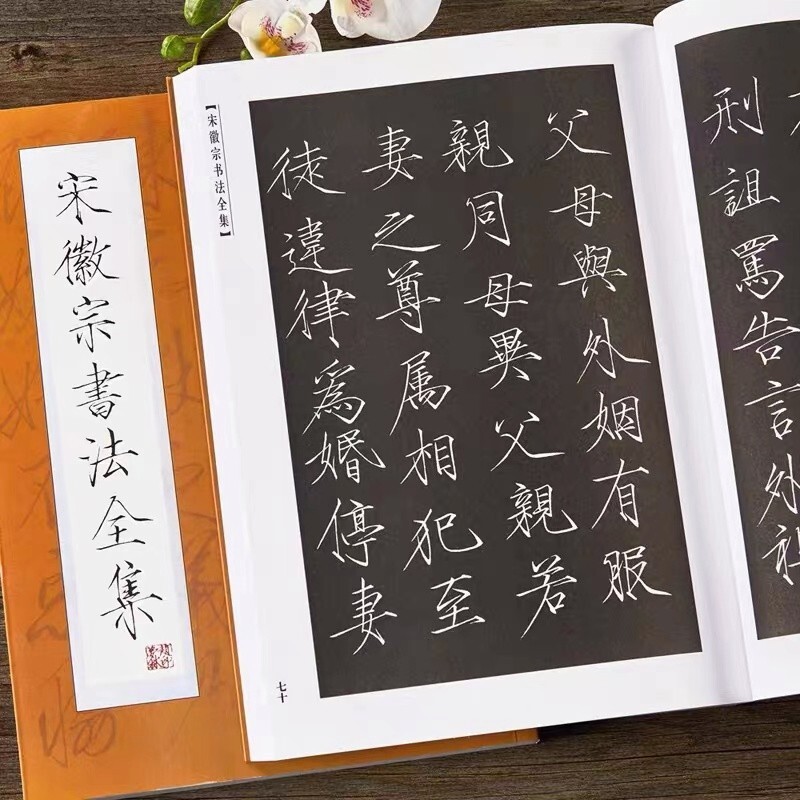 宋徽宗書法全集
【宋徽宗书法全集】
刑詛罵告言外祖
父母與外姻有服
親同母異父親若
妻之尊属相犯至
徒違律爲婚停妻
七十